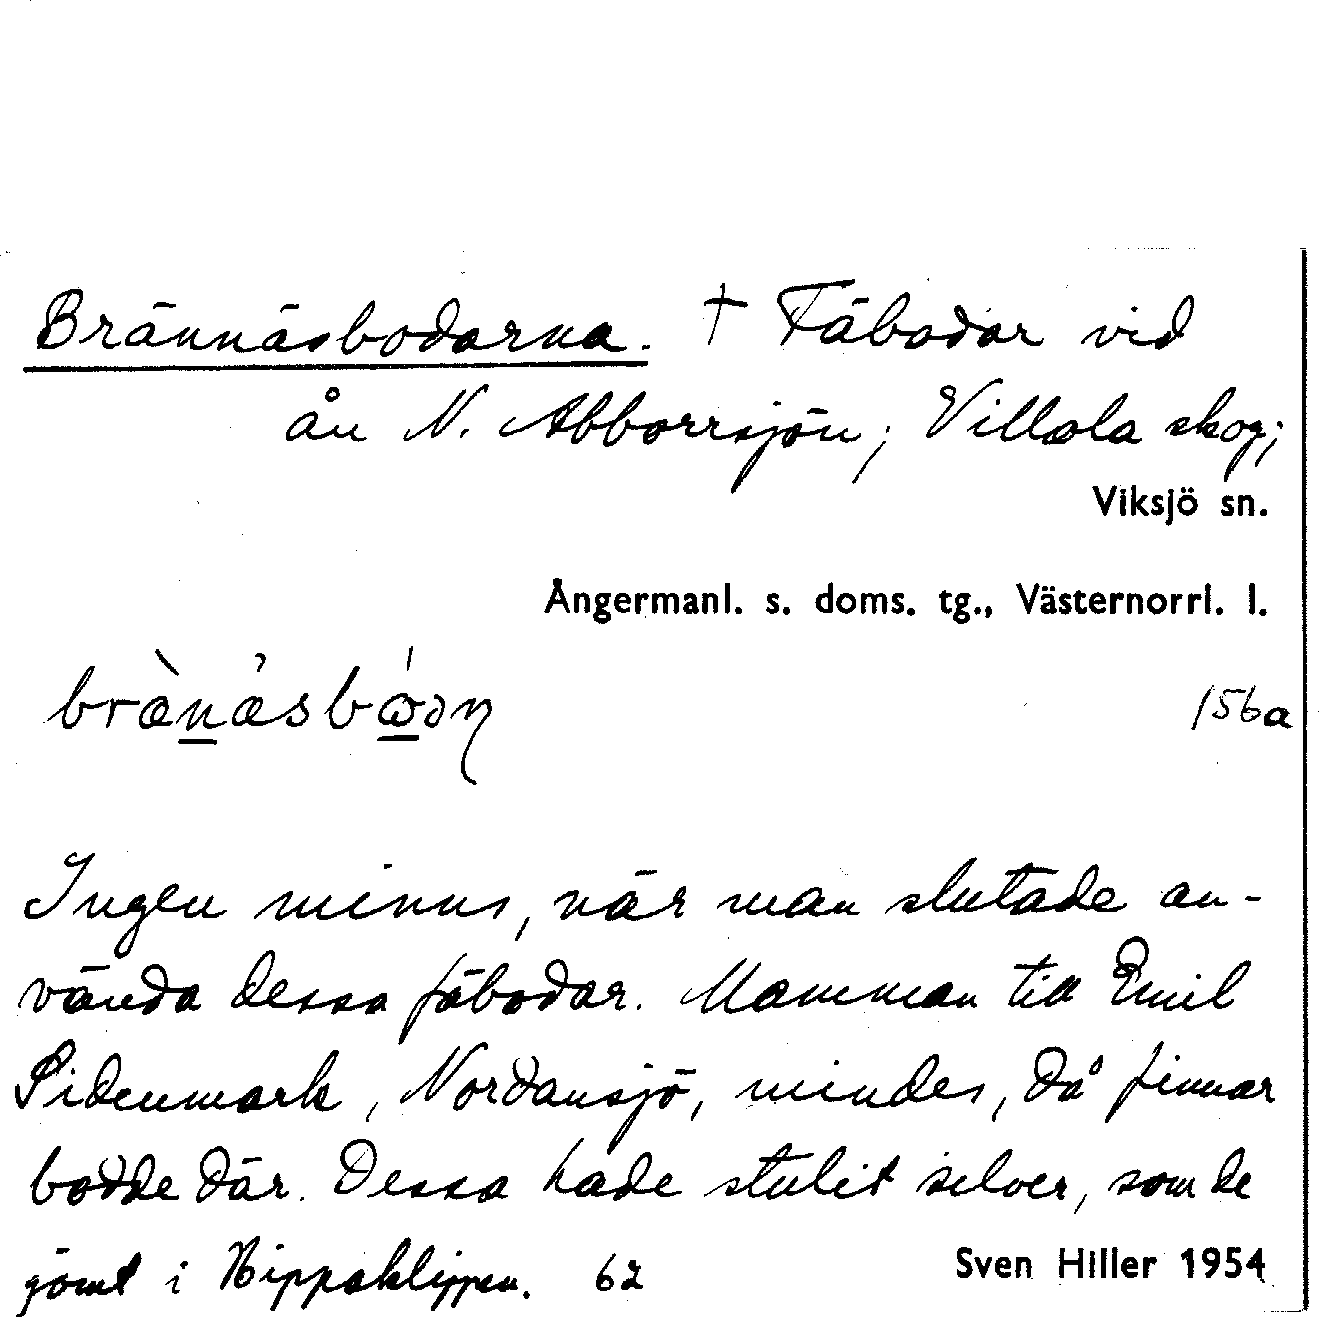 Brännäsbodarna. † Fäbodar vid
ån N. Abborrsjön; Villola skog;
Viksjö sn.
Ångermanl. s. doms. tg., Västernorrl. l.
156a
Ingen minns, när man slutade an-
vända dessa fäbodar. Mamman till Emil
Sidenmark, Nordansjö, mindes, då finnar
bodde där. Dessa hade stulit silver, som de
gömt i 62
Sven Hiller 1954